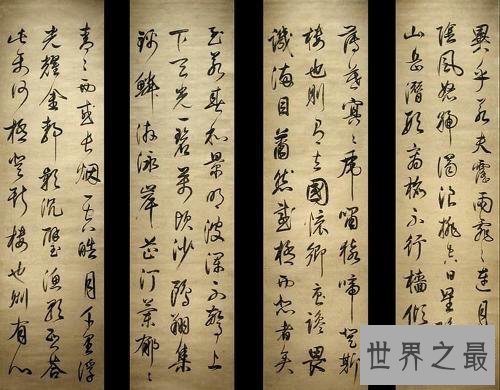 異乎若夫霪雨霏〻連月
陰風怒號濁浪排空日星
山岳潛形商旅不行檣傾
薄暮冥〻虎嘯猿啼登斯
樓也則有去國懷鄉憂讒畏
譏滿目蕭然感極而悲者矣
至若春和景明波瀾不驚上
下天光一碧萬頃沙鷗翔集
錦鱗游泳岸芷汀蘭郁〻
青〻而或長煙一空皓月千里浮
光耀金靜影沉璧漁歌互答
此樂何極登斯樓也則有心
世界之最